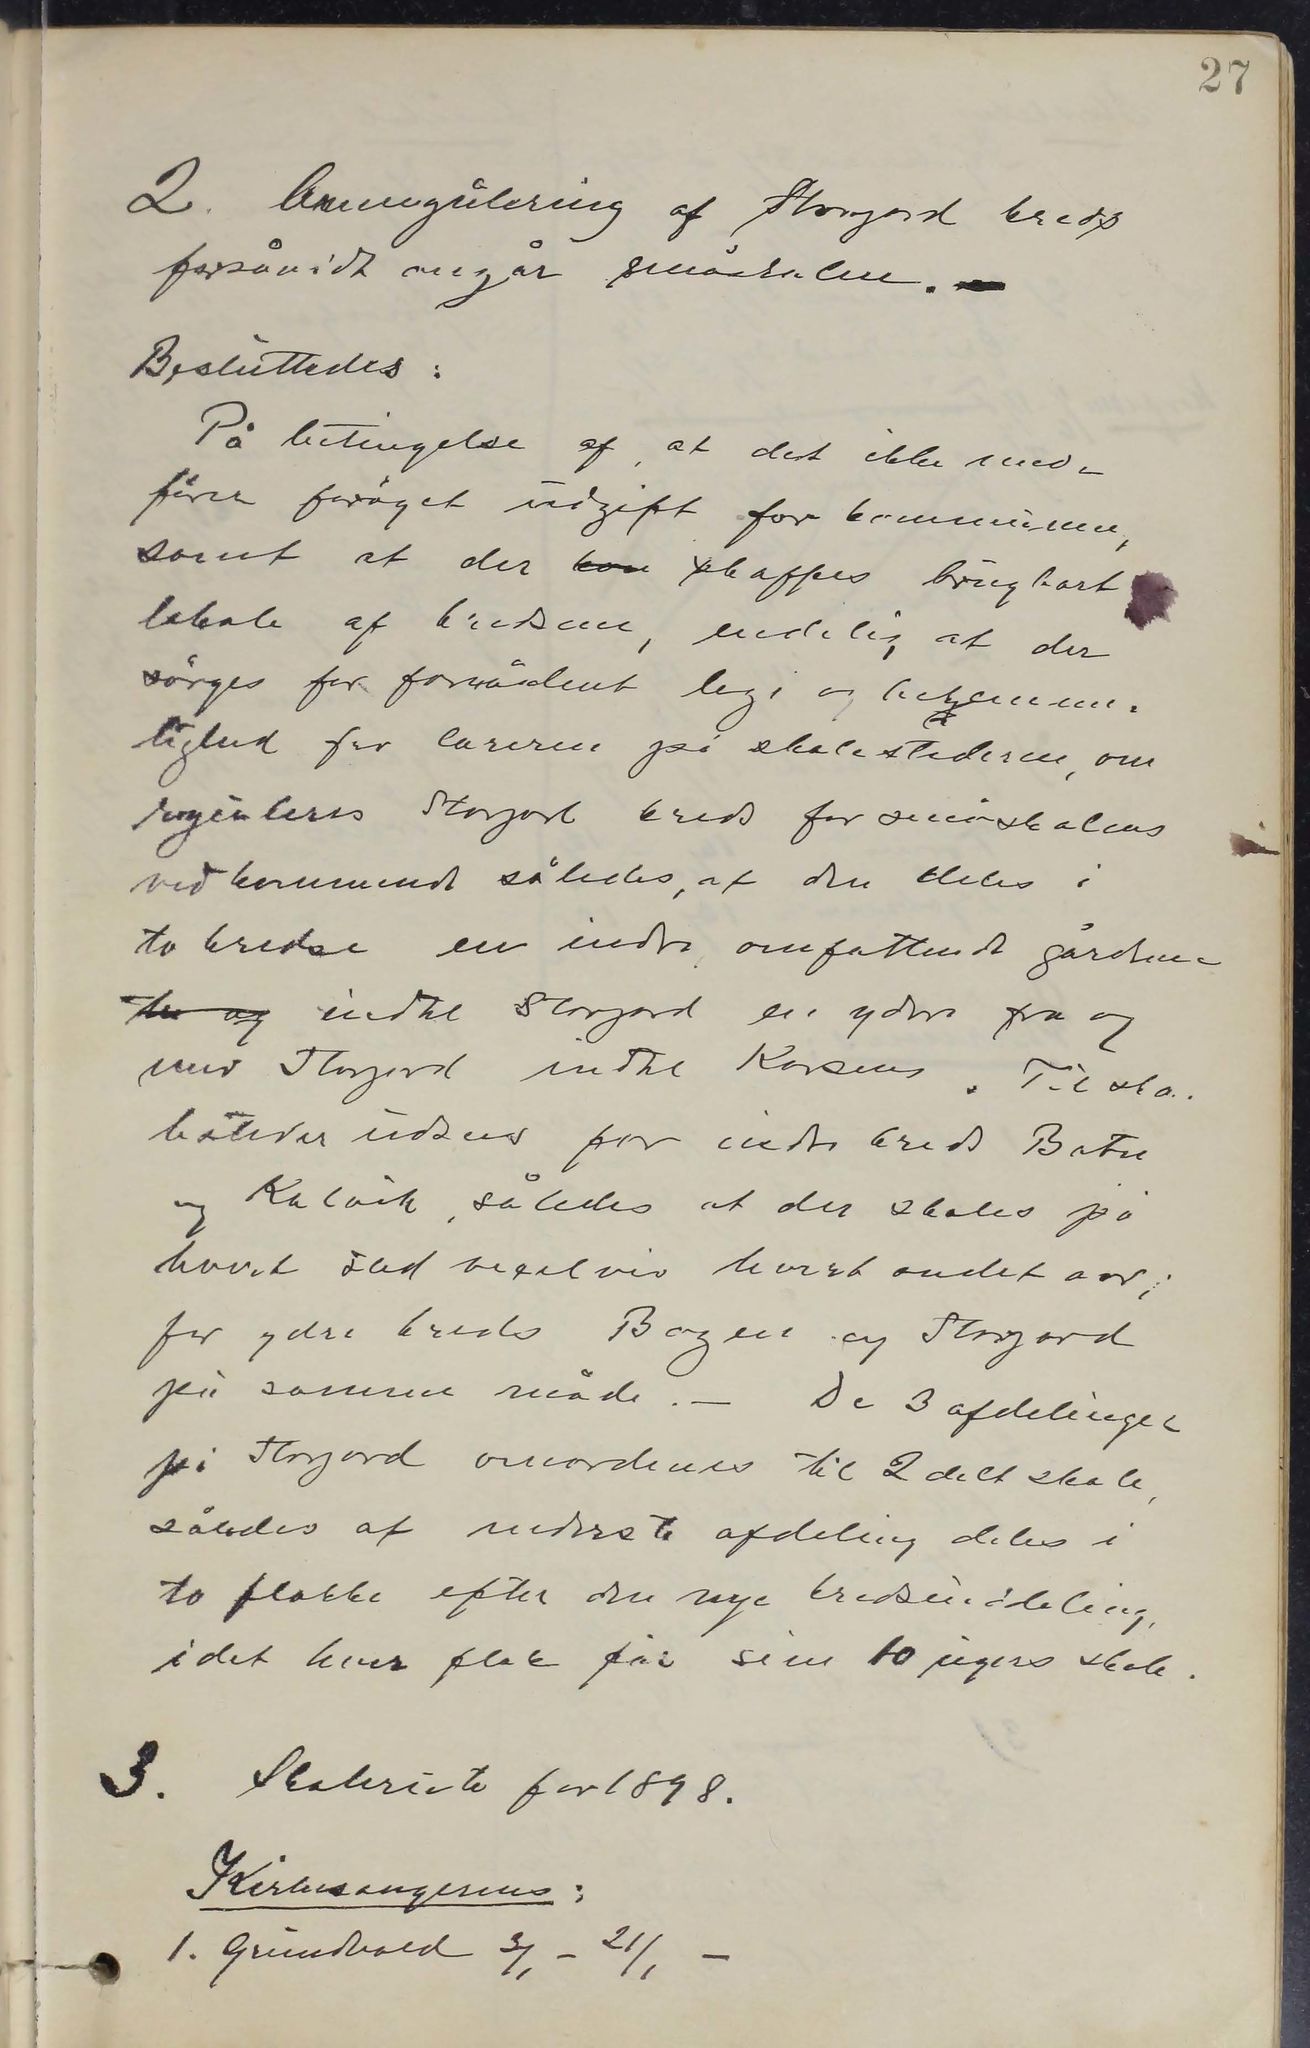 27
2. Omregulering af Storjord kreds
forsåvidt angår småskolen.
Besluttedes:
På betingelse af, at det ikke med-
fører forøget udgift for kommunen,
samt at der kan skaffes brugbart
lokale af kredsene, endelig at der
sørges for forsvarlig logi og bekvemme-
lighed for læreren på skolestederne, om
reguleres Storjord kreds for småskolens
vedkommende således, at den deles i
to kredse en indre omfattende gårdene
indtil Storjord en ydre fra og
med Storjord indtil Korsnes. Til sko-
lesteder udsees for indre kreds Botn
og Kalvik, således at der skoles på
hvert sted vexelvis hvert andet aar;
for ydre kreds Bogen og Storjord
på samme måde. — De 3 afdelinger
på Storjord omordnes til 2 delt skole,
således at nederste afdeling deles i
to flokke efter den nye kredsinddeling,
idet hver flok får sine 10 ugers skole.
3. Skolerute for 1898.
Kirkesangerens:
1. Grundvold 3/1 - 21/1 —